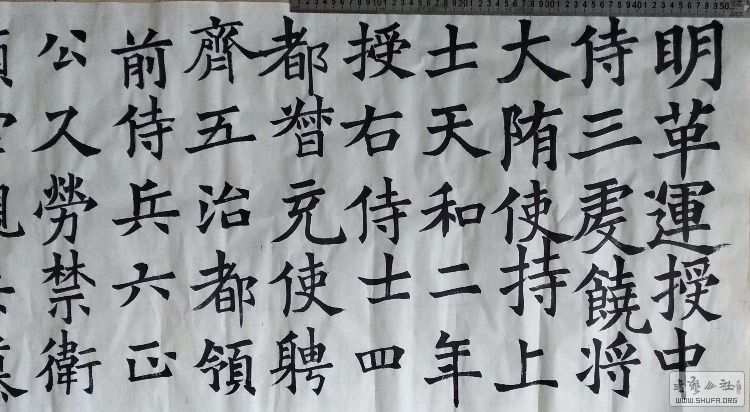 明革運授中
侍三饒将
大陏使持上
士天和二年
授右侍士四
都督充使聘
齊五治都領
前侍兵六正
公久勞禁衛
書藝公社
WWW.SHUFA.ORG